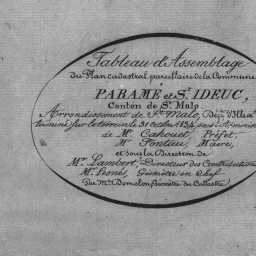 Tableau d'Assemblage
du Plan cadastral parcellaire de la Commune
PARAMÉ et St. IDEUC,
Canton de St. Malo
Arrondissement de St. Malo, Dépt. d'Ille et
terminé sur le terrain le 31 octobre 1834, sous
de Mr. Cahouet, Préfet,
Mr. Pontau, Maire,
et sous la Direction de
Mr. Lambert, Directeur des Contributions
Mr. Géomètre en Chef
Par Mr. Géomètre du Cadastre